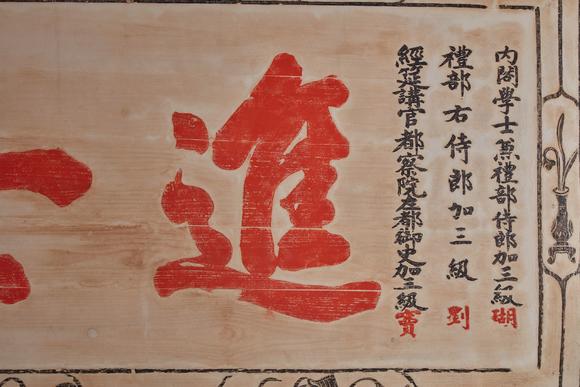 內閣學士兼禮部侍郎加三級瑚
禮部右侍郎加三級劉
經筵講官都察院左都御史加三級寶
進